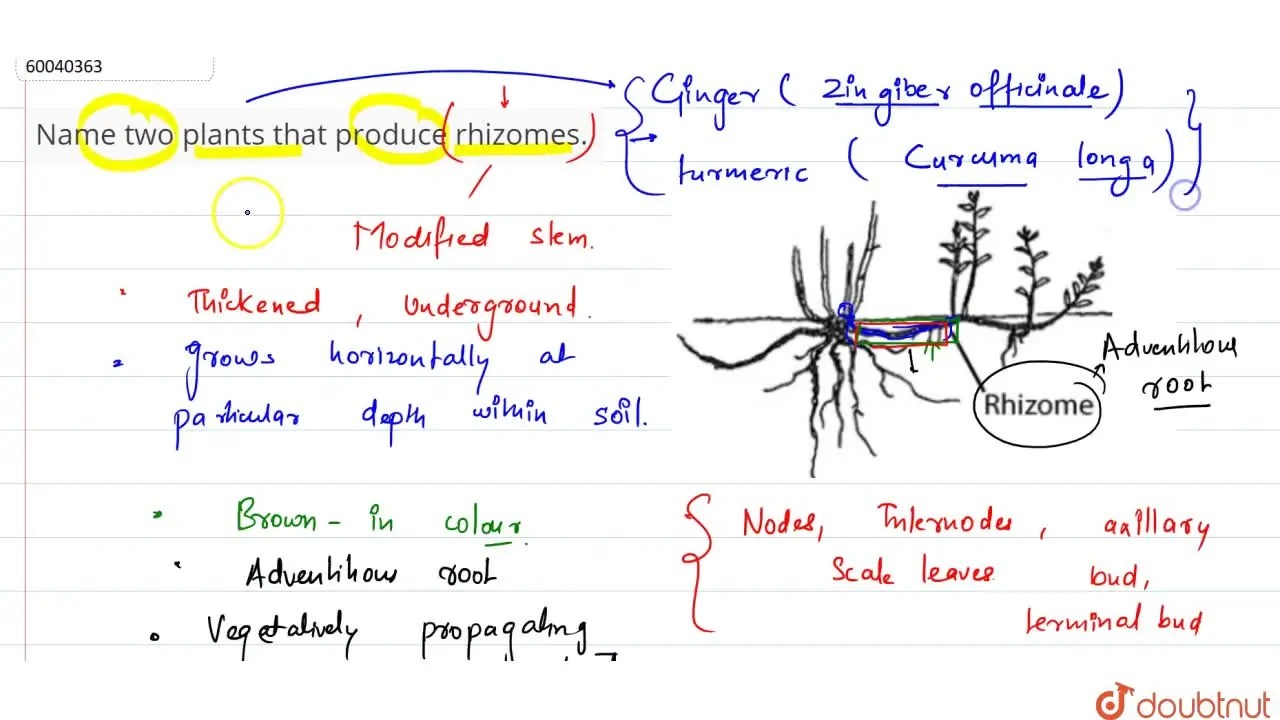 60040363
Name two plants that produce rhizomes.
Ginger ( Zingiber officinale)
turmeric ( Curcuma longa)
Modified stem.
Thickened, Underground.
grows horizontally at
particular depth within soil.
Rhizome
Adventitious
root
Brown - in colour.
Adventitious root
Vegetatively propagating
Nodes, Internodes, axillary
Scale leaves bud,
terminal bud
doubtnut